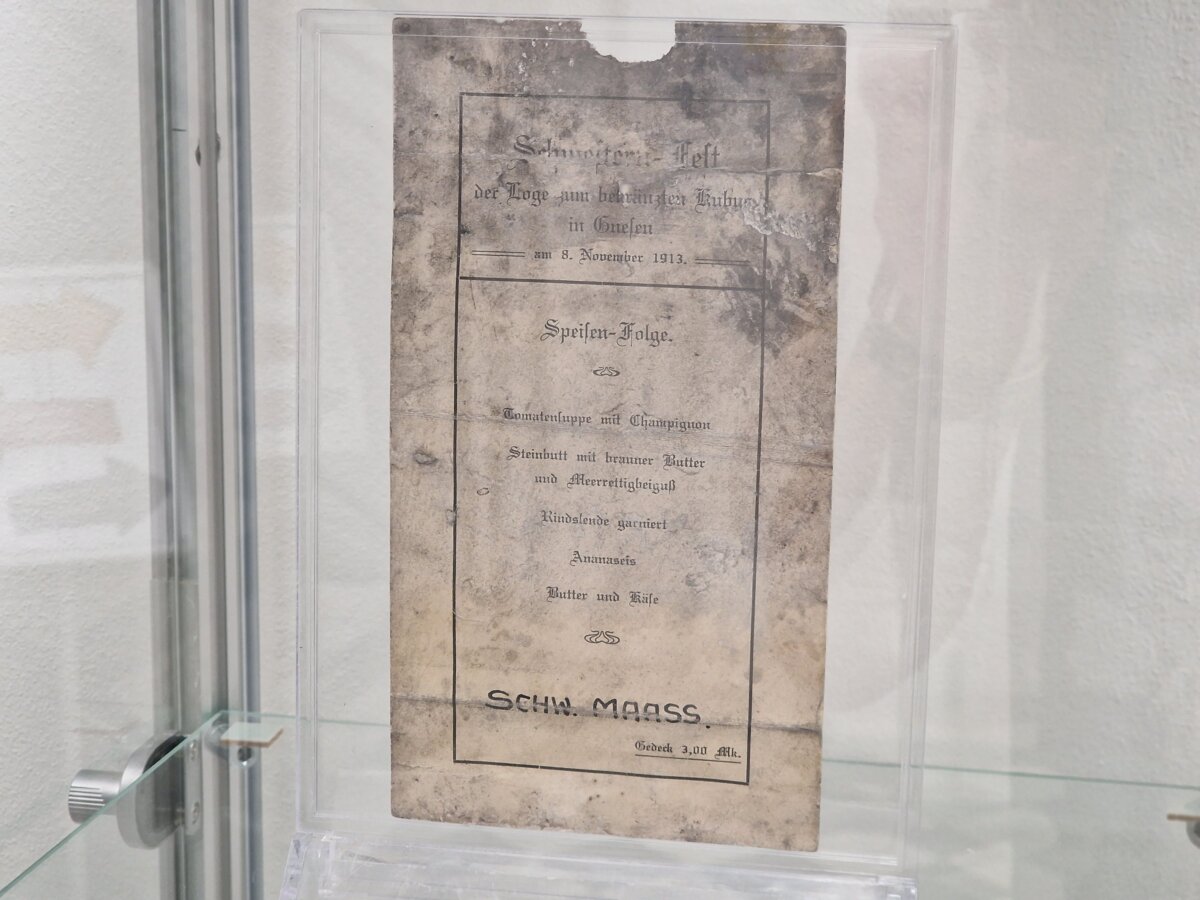 Schwestern-Fest
der Loge zum bekränzten Kubus
in Gnesen
am 8. November 1913.
Speisen-Folge.
Tomatensuppe mit Champignon
Steinbutt mit brauner Butter
und Meerrettigbeiguß
Rindslende garniert
Ananaseis
Butter und Käse
SCHW. MAASS.
Gedeck 3,00 Mk.